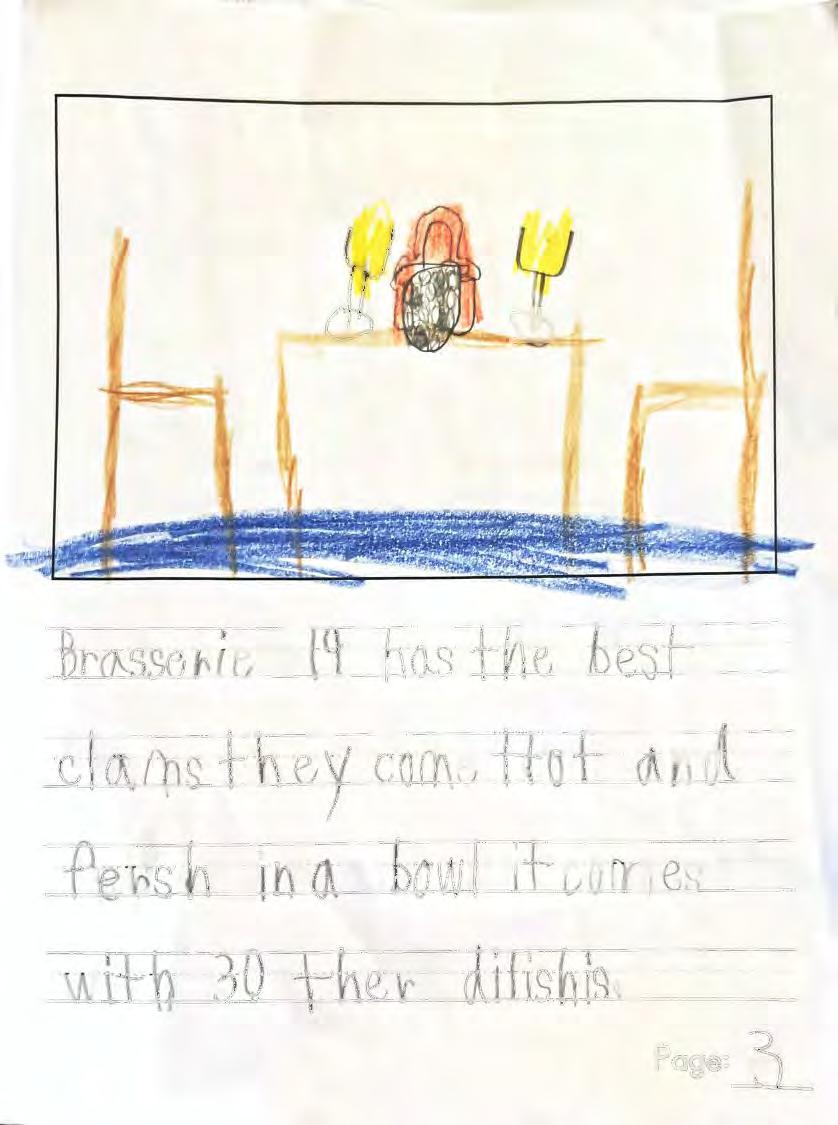 Brasserie 19 has the best
clams they come Hot and
fersh in a bowl it comes
with 30 ther dilishis.
Page: 3